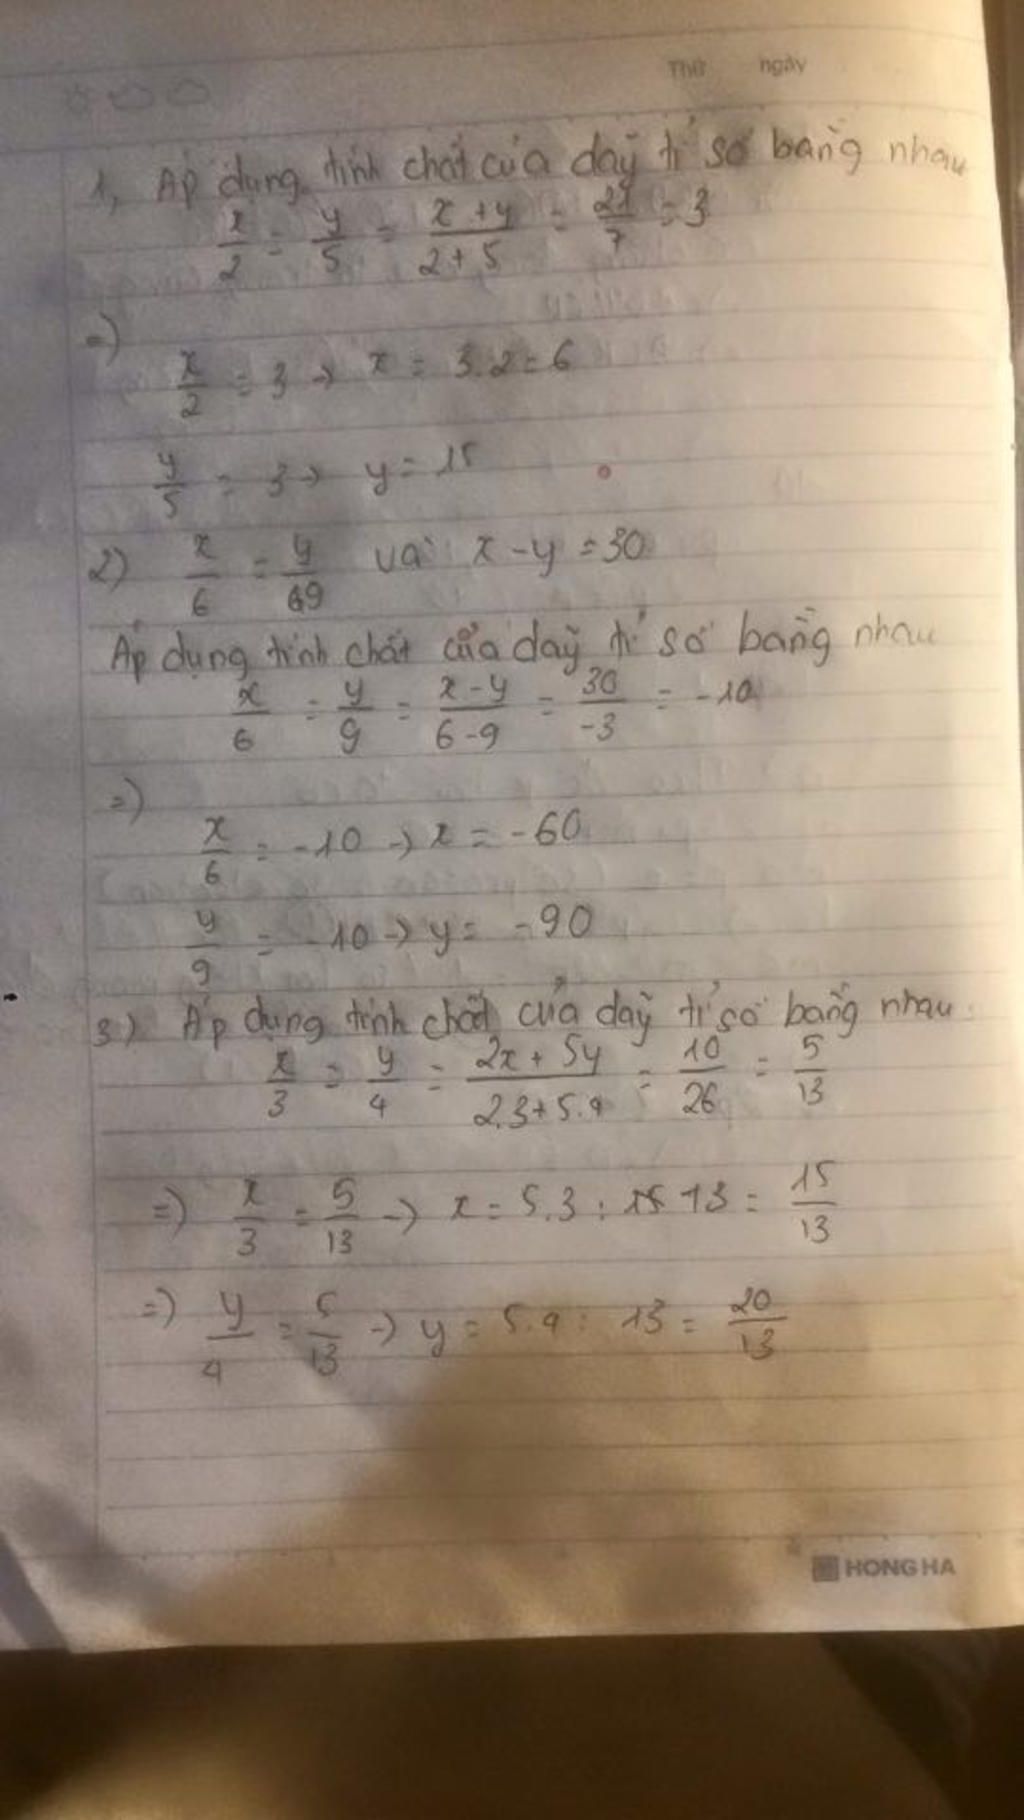 Thứ ngày
1, Áp dụng tính chất của dãy tỉ số bằng nhau
x/2 = y/5 = (x+y)/(2+5) = 21/7 = 3
=)
x/2 = 3 → x = 3.2 = 6
y/5 = 3 → y = 15
2) x/6 = y/69 và x-y = 30
Áp dụng tính chất của dãy tỉ số bằng nhau
x/6 = y/9 = (x-y)/(6-9) = 30/-3 = -10
=)
x/6 = -10 → x = -60
y/9 = -10 → y = -90
3) Áp dụng tính chất của dãy tỉ số bằng nhau
x/3 = y/4 = (2x + 5y)/(2.3+5.4) = 10/26 = 5/13
=) x/3 = 5/13 → x = 5.3 : 13 = 15/13
=) y/4 = 5/13 → y = 5.4 : 13 = 20/13
HONG HA